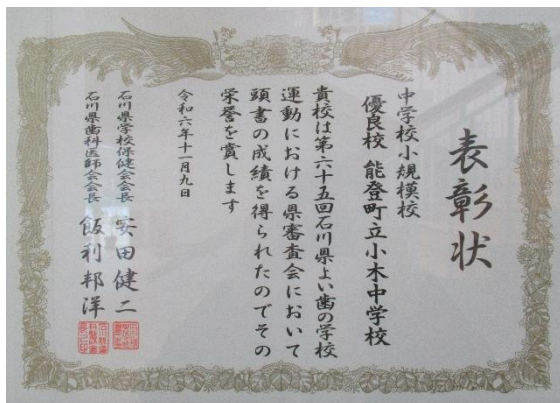 表彰状
中学校小規模校
優良校 能登町立小木中学校
貴校は第六十五回石川県よい歯の学校
運動における県審査会において
頭書の成績を得られたのでその
栄誉を賞します
令和六年十一月九日
石川県学校保健会会長 安田健二
石川県歯科医師会会長 飯利邦洋